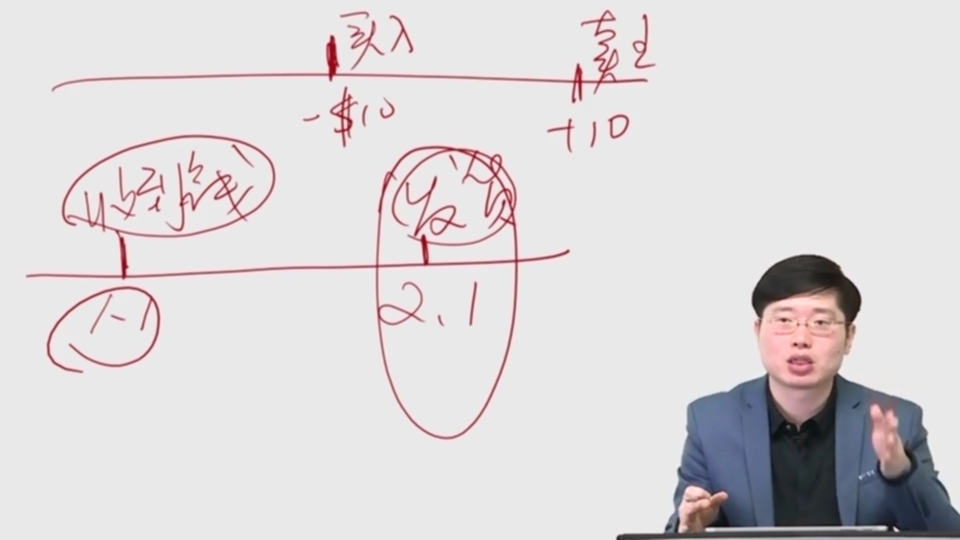 买入 卖出
-$10 +10
收到钱 发货
1-1 2.1